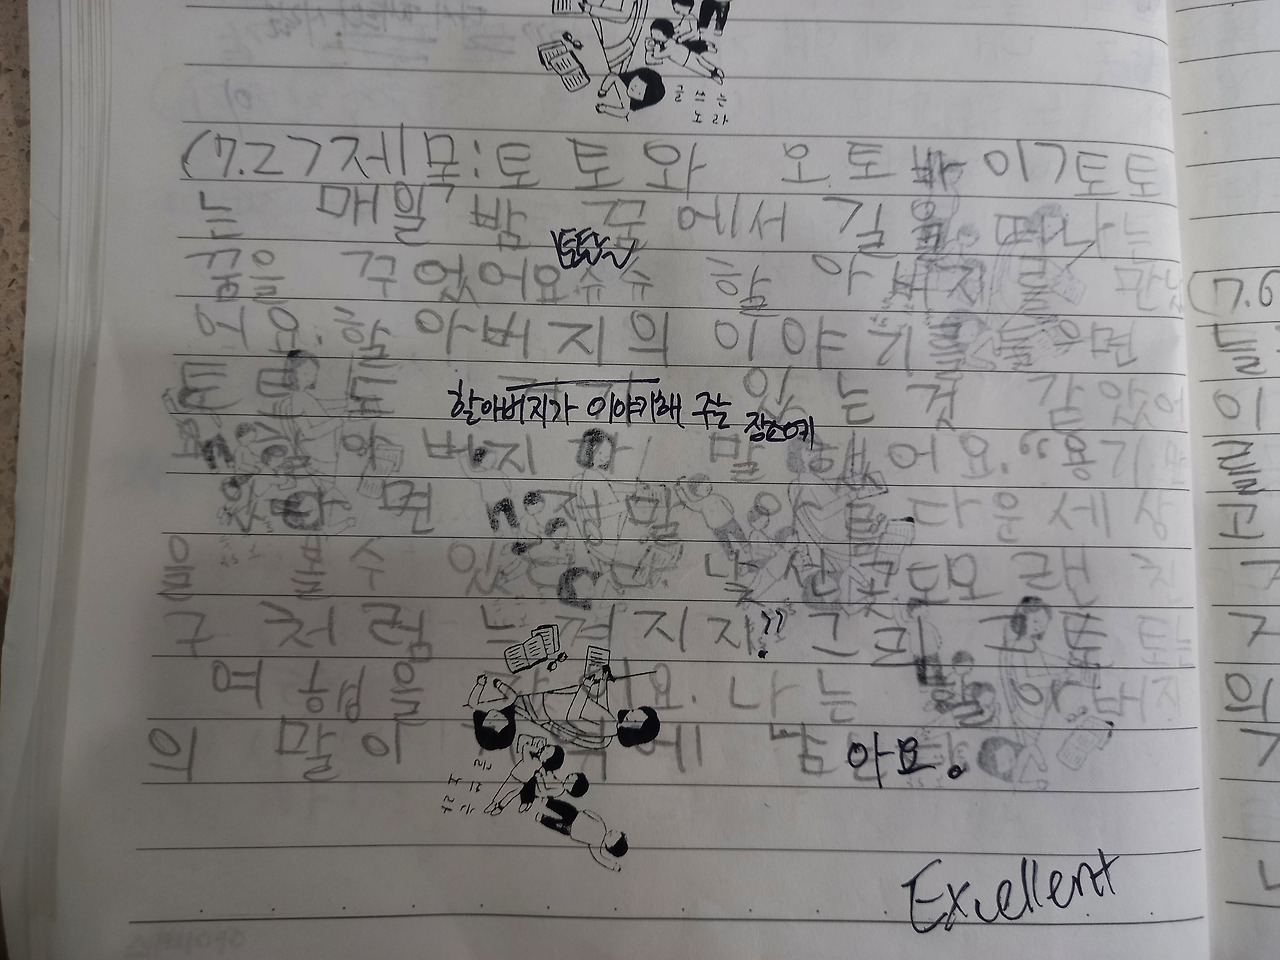 글 쓰는
노라
(7.27제목:토토와 오토바이7토토
는 매일 밤 꿈에서 길을 떠나는
토토는
꿈을 꾸었어요 슈슈 할아버지를 만났
어요. 할아버지의 이야기를 들으면
있는 것 같았어
할아버지가 이야기해 주는 장소에
요. 할아버지가 말했어요. "용기만
있다면 정말 아름다운 세상
을 볼 수 있 낯선 곳도 오랜 친
구처럼 느껴지지?" 그리고 토토는
여행을 요. 나는 할아버지
의 말이 에 남 아요.
Excellent
(7.6